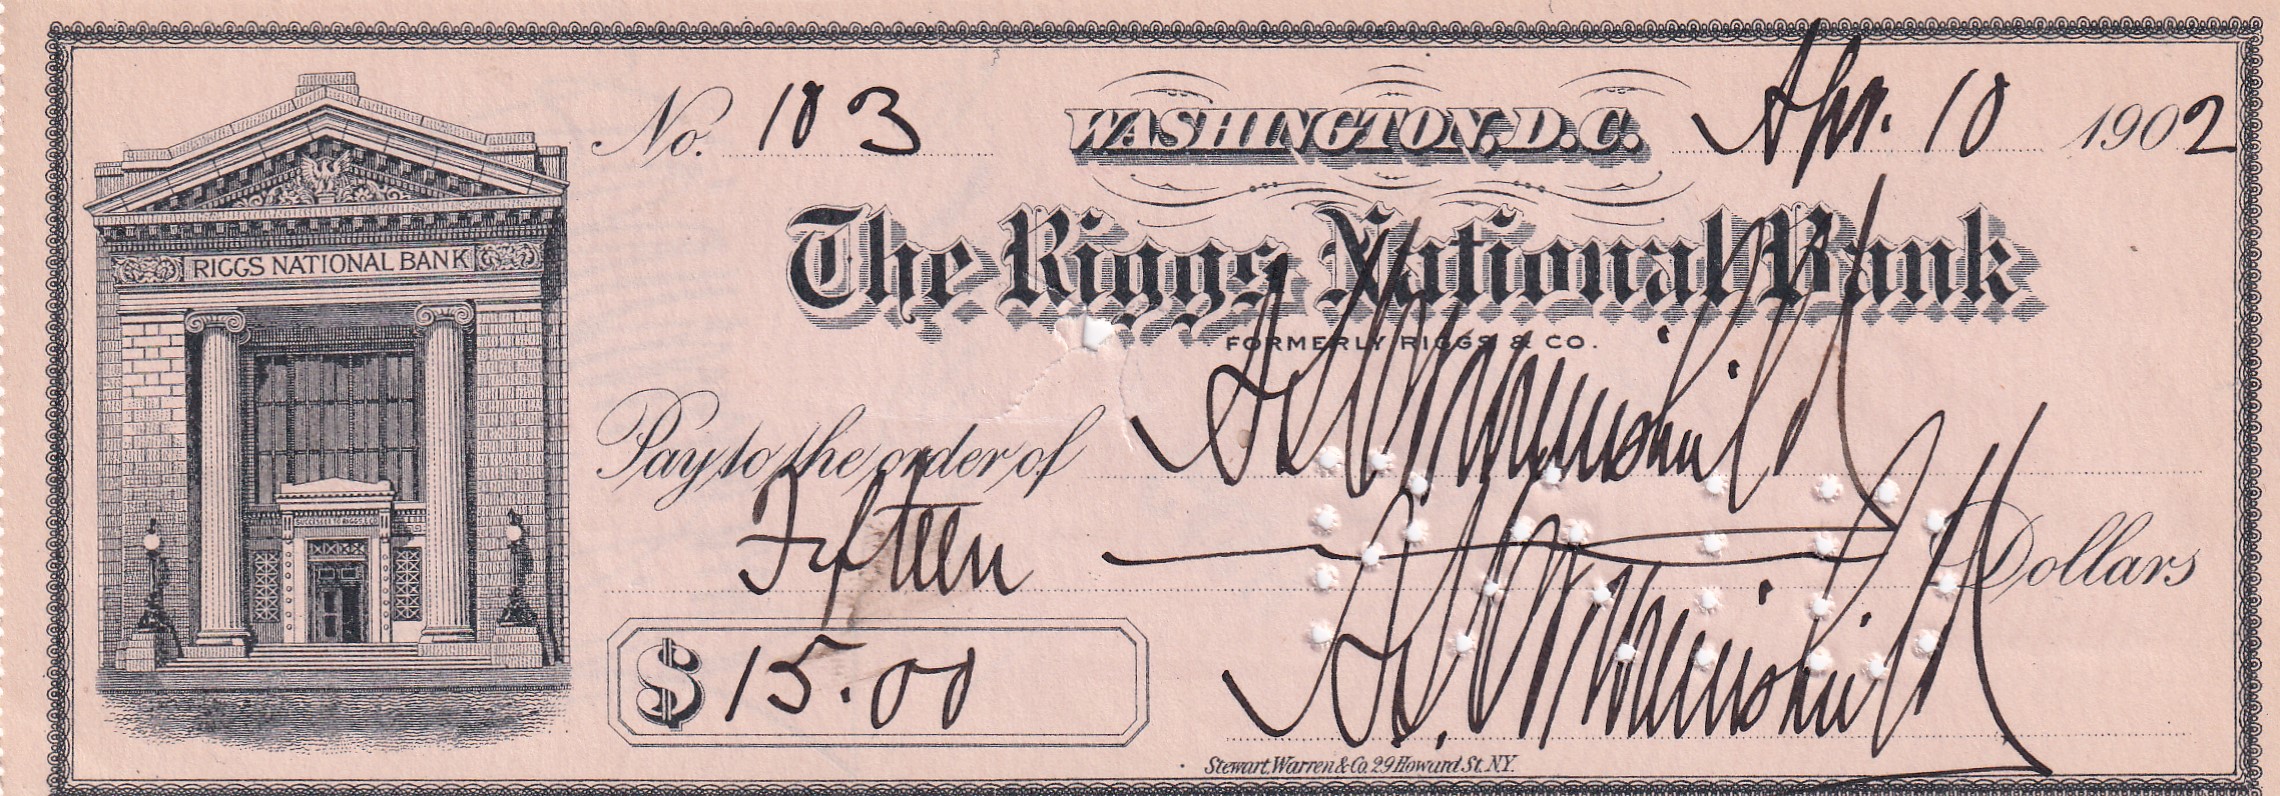 No. 103 WASHINGTON, D.C. Apr. 10 1902
The Riggs National Bank
FORMERLY RIGGS & CO.
RIGGS NATIONAL BANK
SUCCESSOR TO RIGGS & CO
Pay to the order of
Fifteen Dollars
$ 15.00
Stewart, Warren & Co. 29 Howard St. N.Y.